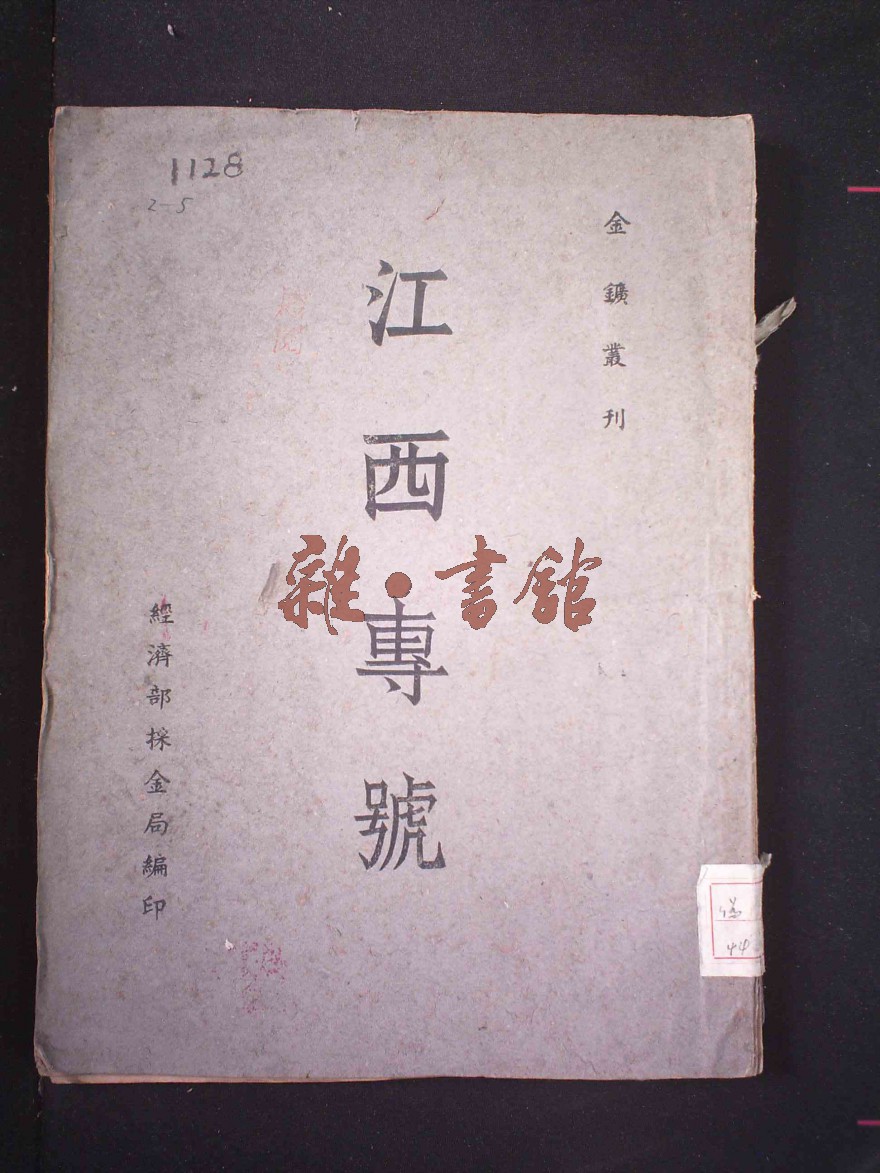 1128
2-5
金鑛叢刊
江西專號
雜·書館
經濟部採金局編印
44